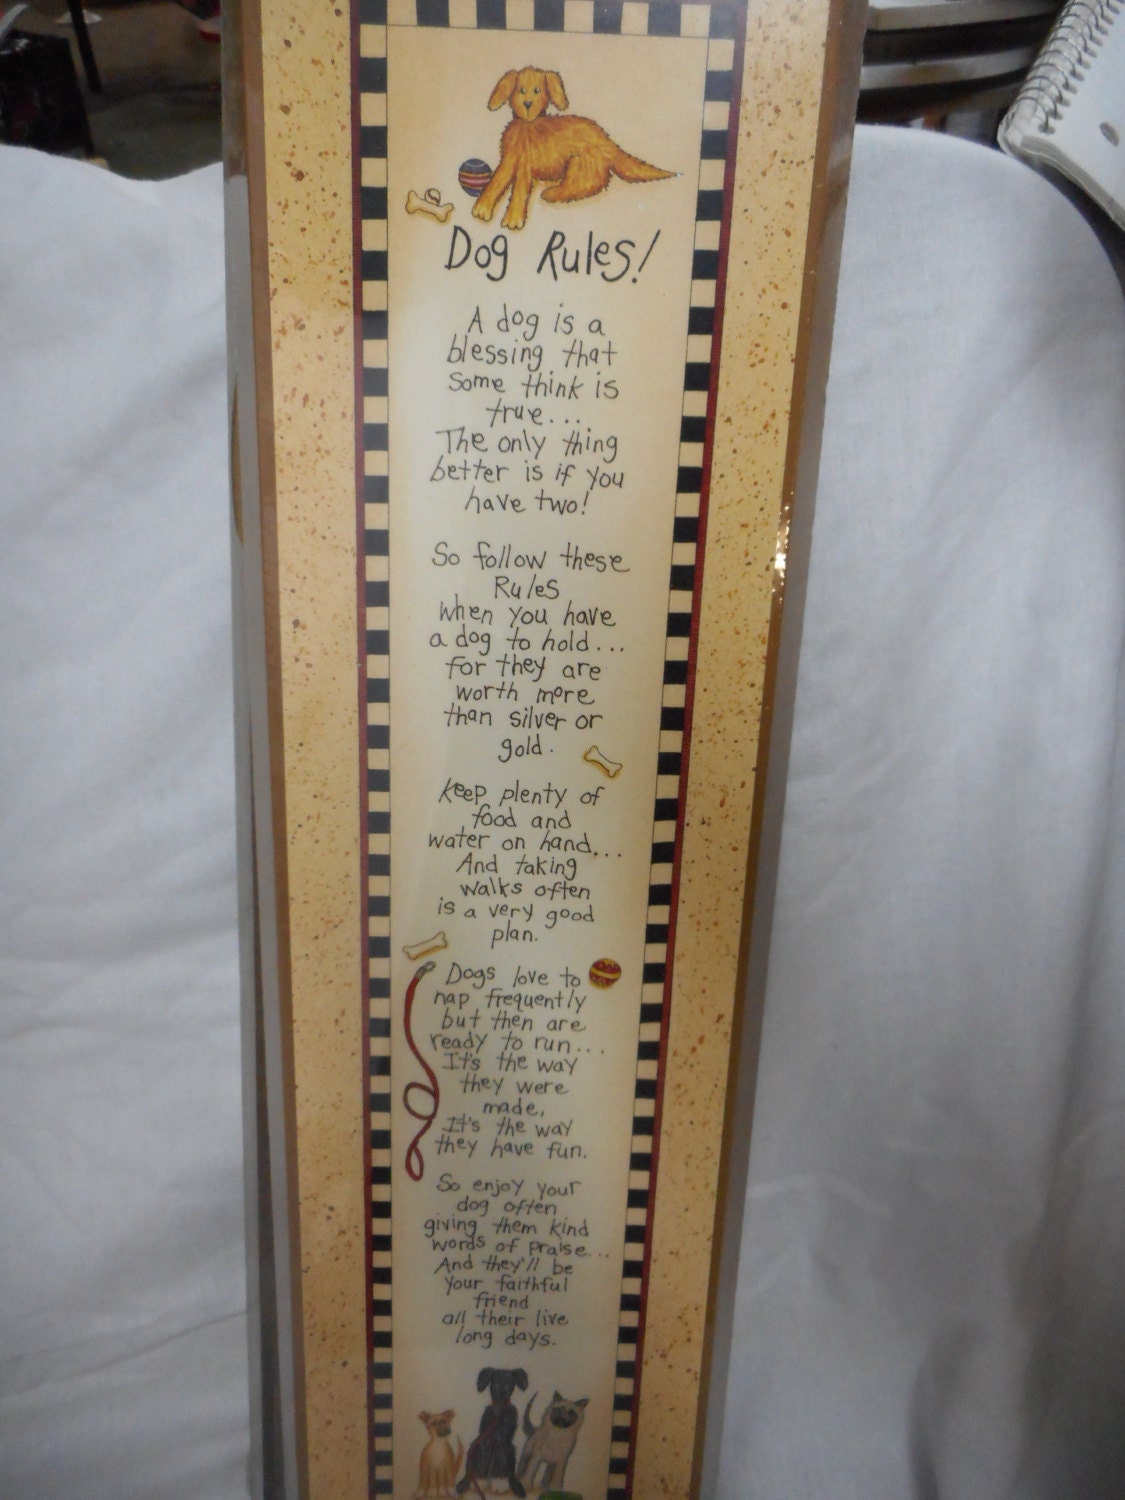 Dog Rules!
A dog is a
blessing that
some think is
true...
The only thing
better is if you
have two!
So follow these
Rules
when you have
a dog to hold...
for they are
worth more
than silver or
gold.
Keep plenty of
food and
water on hand...
And taking
walks often
is a very good
plan.
Dogs love to
nap frequently
but then are
ready to run...
It's the way
they were
made,
It's the way
they have fun.
So enjoy your
dog often
giving them kind
words of praise...
And they'll be
your faithful
friend
all their live
long days.